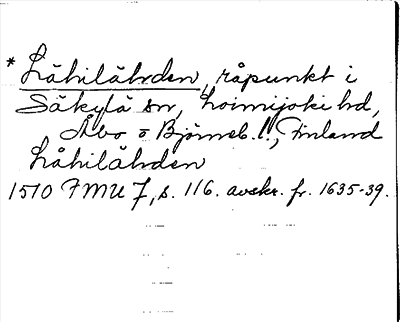 * Lähilähden, råpunkt i
Säkylä sn, Loimijoki hd,
Åbo o Björneb. l., Finland
Lähilähden
1510 FMU 7, s. 116. avskr. fr. 1635-39.